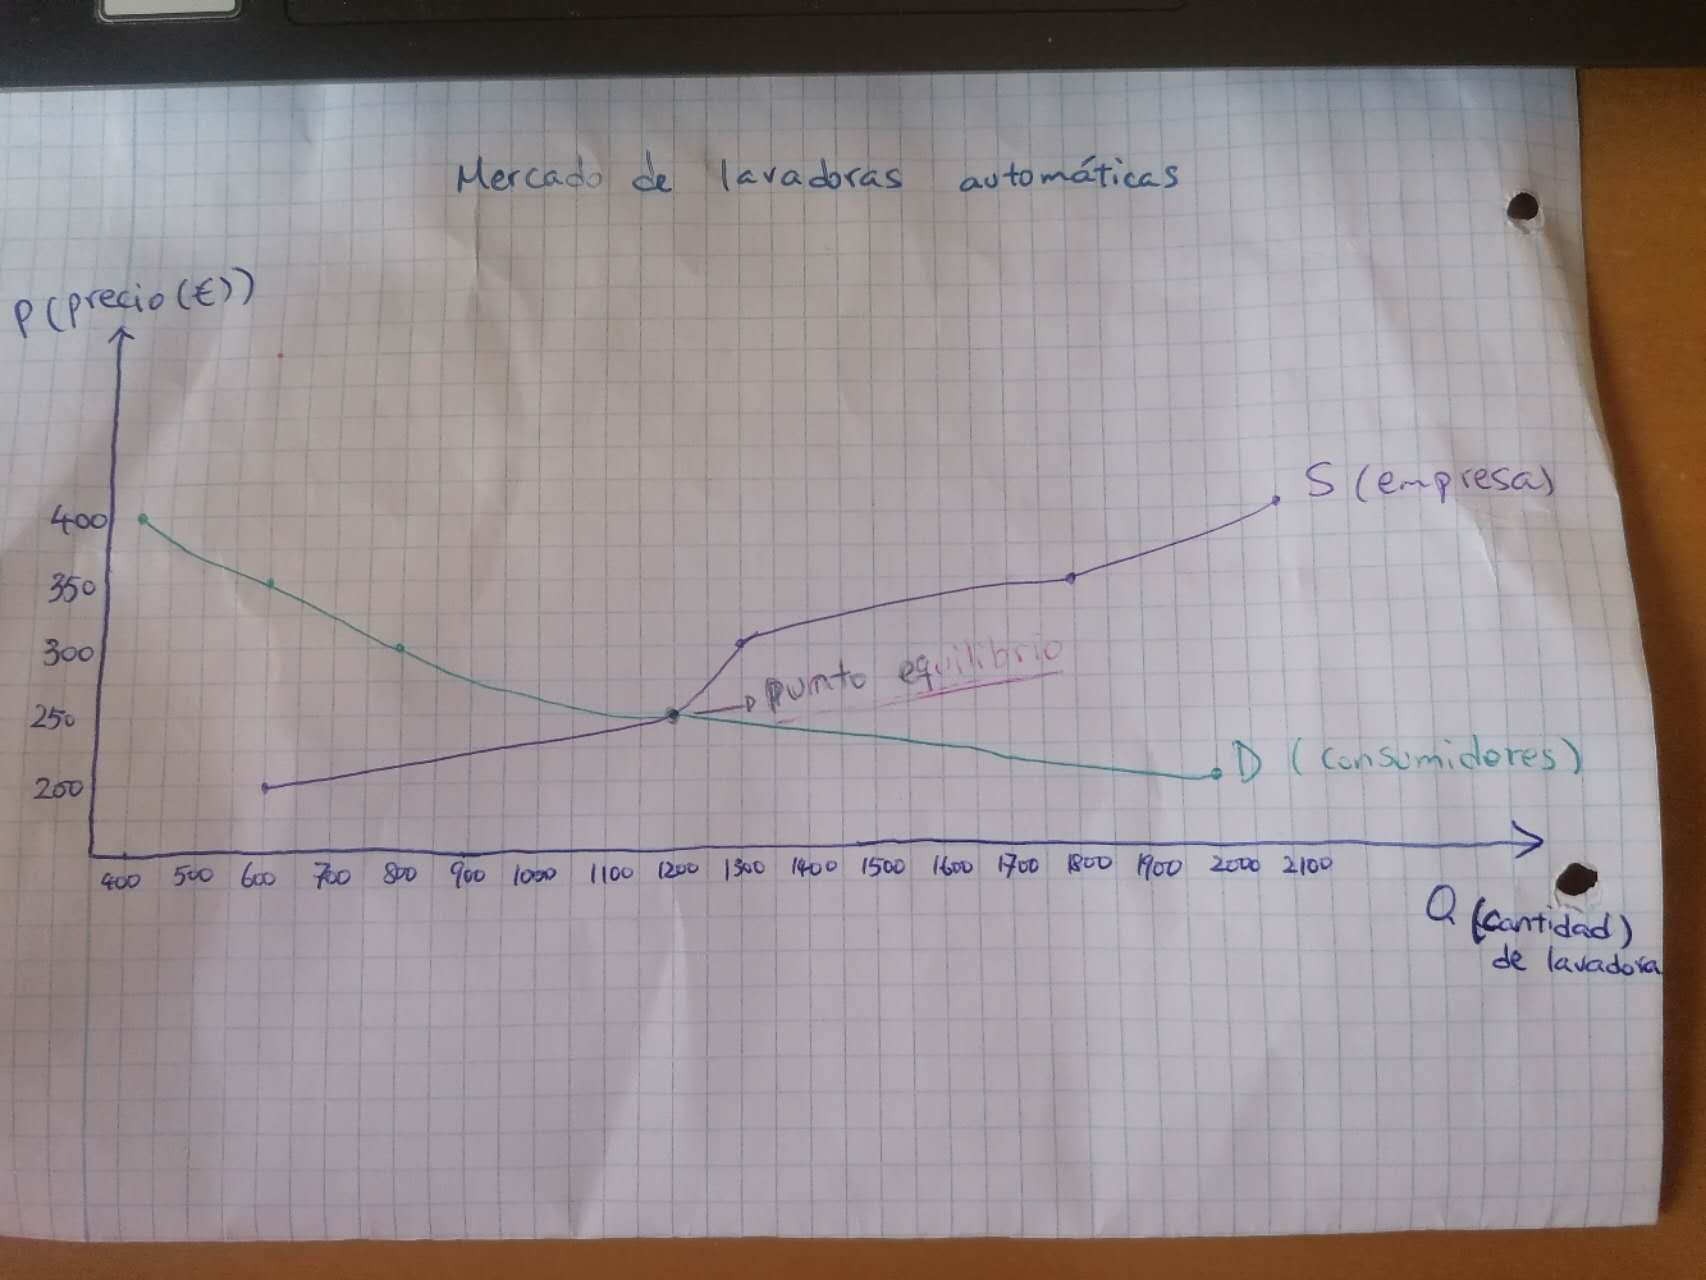 Mercado de lavadoras automáticas
P(precio(€))
S (empresa)
400
350
300
punto equilibrio
250
D (consumidores)
200
400 500 600 700 800 900 1000 1100 1200 1300 1400 1500 1600 1700 1800 1900 2000 2100
Q (cantidad)
de lavadora